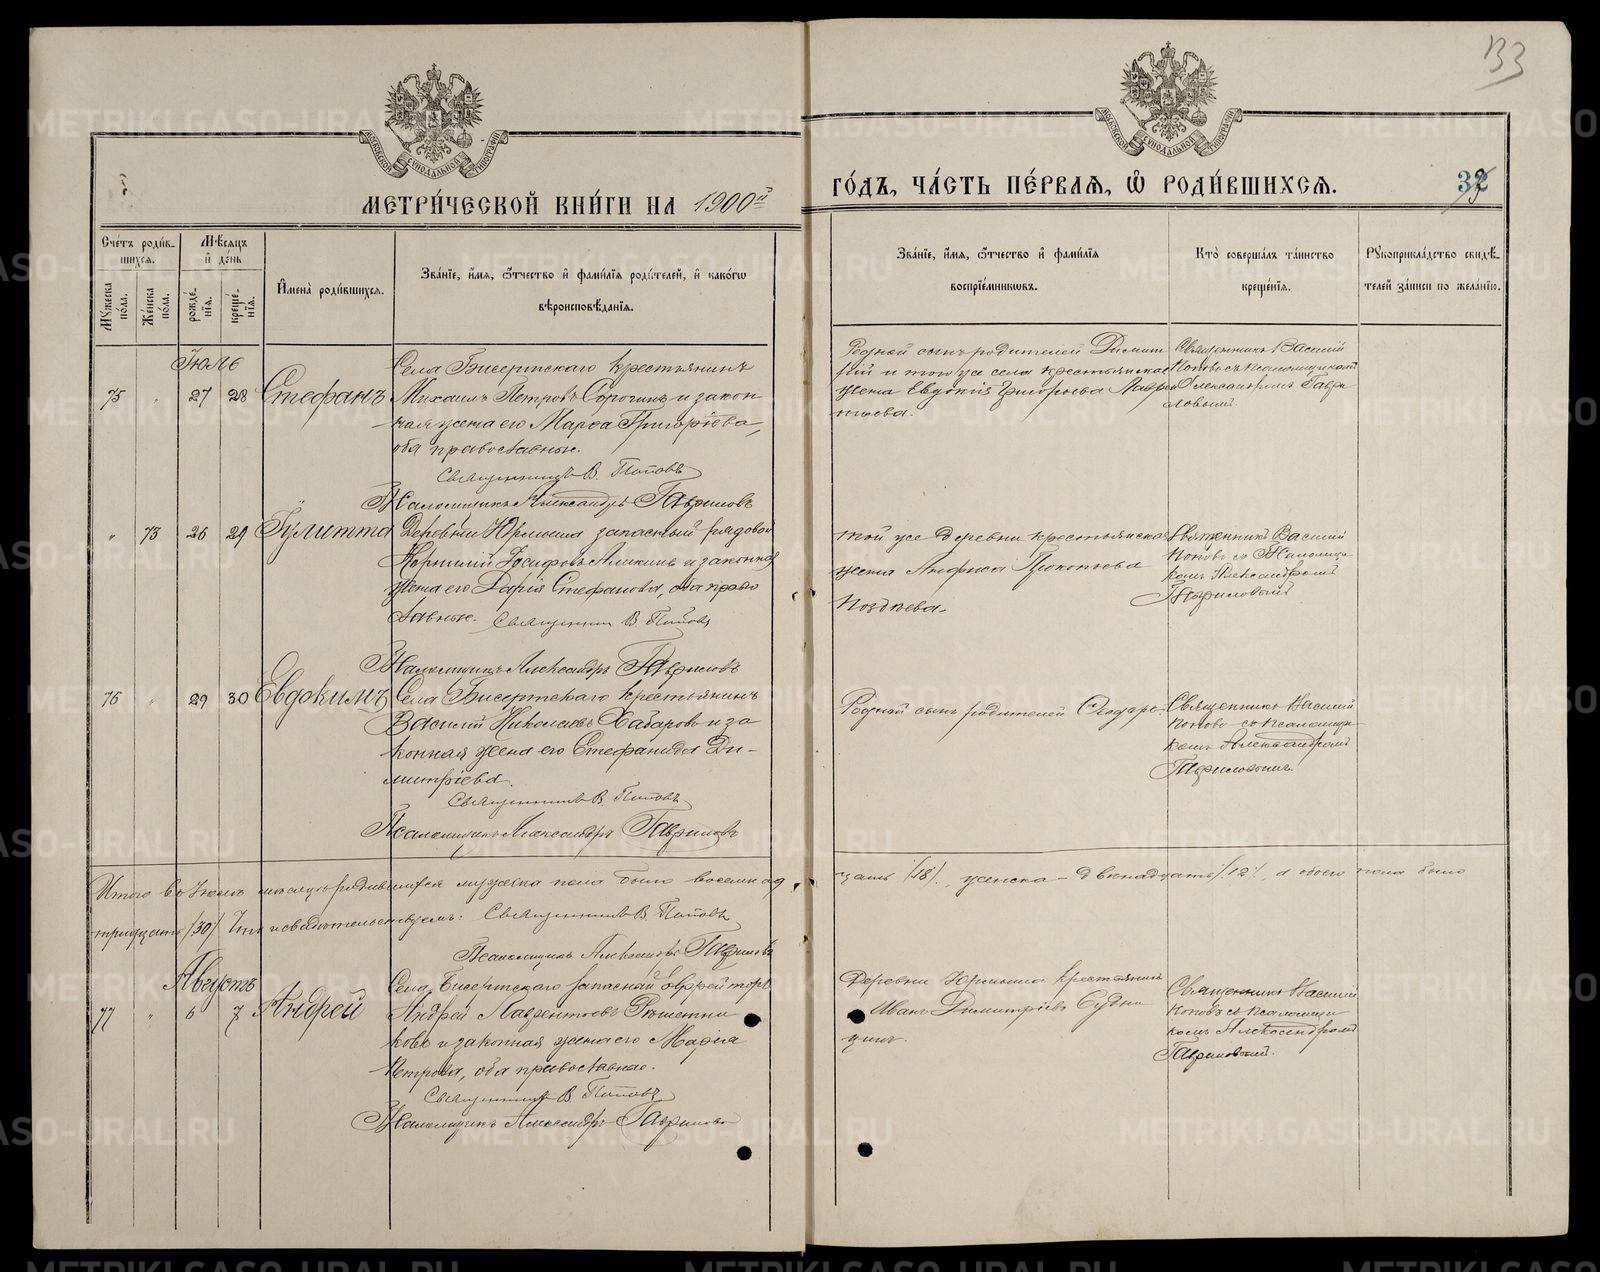 133
МЕТРИ́ЧЕСКОЙ КНИ́ГИ НА 1900й
ГО́ДЪ, ЧА́СТЬ ПЕ́РВАЯ, Ѿ РОДИ́ВШИХСЯ.
Сче́тъ роди́в-
шихся.
Мꙋ́жеска по́ла.
Же́нска по́ла.
Мѣ́сяцъ и де́нь
рожде́-нїя.
креще́-нїя.
И́мена̀ роди́вшихся.
Зва́нїе, и́мя, ѻ́тчество и фами́лїя роди́телей, и како́гѡ
вѣроисповѣ́данїя.
Зва́нїе, и́мя, ѻ́тчество и фами́лїя
воспрїе́мниковъ.
Кто̀ соверша́лъ та́инство
креще́нїя.
Рꙋкоприкла́дство свидѣ́-
телей за́писи по жела́нїю.
Іюль
75 " 27 28 Стефанъ
Села Бисертскаго крестьянинъ
Михаилъ Петровъ Сорокинъ и закон-
ная жена его Марѳа Григоріева,
оба православные.
Священникъ В. Поповъ
Псаломщикъ Александръ Гавриловъ
Родной сынъ родителей Димит-
рій и того же села крестьянская
жена Евдокія Григорьева
Священникъ Василій
Поповъ съ псаломщикомъ
Александромъ Гаври-
ловымъ.
" 73 26 29 Іулитта
Деревни Юрмыша запасный рядовой
Корнилій Іосифовъ и законная
жена его Дарія Стефанова, оба право-
славные. Священникъ В. Поповъ
Псаломщикъ Александръ Гавриловъ
той же деревни крестьянская
жена Анфиса Прокопьева
Поздѣева.
Священникъ Василій
Поповъ со Псаломщи-
комъ Александромъ
Гавриловымъ
76 " 29 30 Евдокимъ
Села Бисертскаго крестьянинъ
Василій Николаевъ Хабаровъ и за-
конная жена его Стефанида Ди-
митріева.
Священникъ В. Поповъ
Псаломщикъ Александръ Гавриловъ
Родной сынъ родителей Ѳеодоръ.
Священникъ Василій
Поповъ съ псаломщи-
комъ Александромъ
Гавриловымъ
Итого въ Іюлѣ мѣсяцѣ родившихся мужеска пола было восемнад-
цать /18/, женска – двѣнадцать /12/, а обоего пола было
тридцать /30/ Что и свидетельствуемъ: Священникъ В. Поповъ
Псаломщикъ Александръ Гавриловъ
Августъ
77 " 6 7 Андрей
Села Бисертскаго запасный ефрейторъ
Андрей Лаврентьевъ Рѣшетни-
ковъ и законная жена его Марія
Петрова, оба православные.
Священникъ В. Поповъ
Псаломщикъ Александръ Гавриловъ
Деревни Юрмыша крестьянинъ
Иванъ Димитріевъ
Священникъ Василій
Поповъ съ псаломщи-
комъ Александромъ
Гавриловымъ.
METRIKI.GASO-URAL.RU